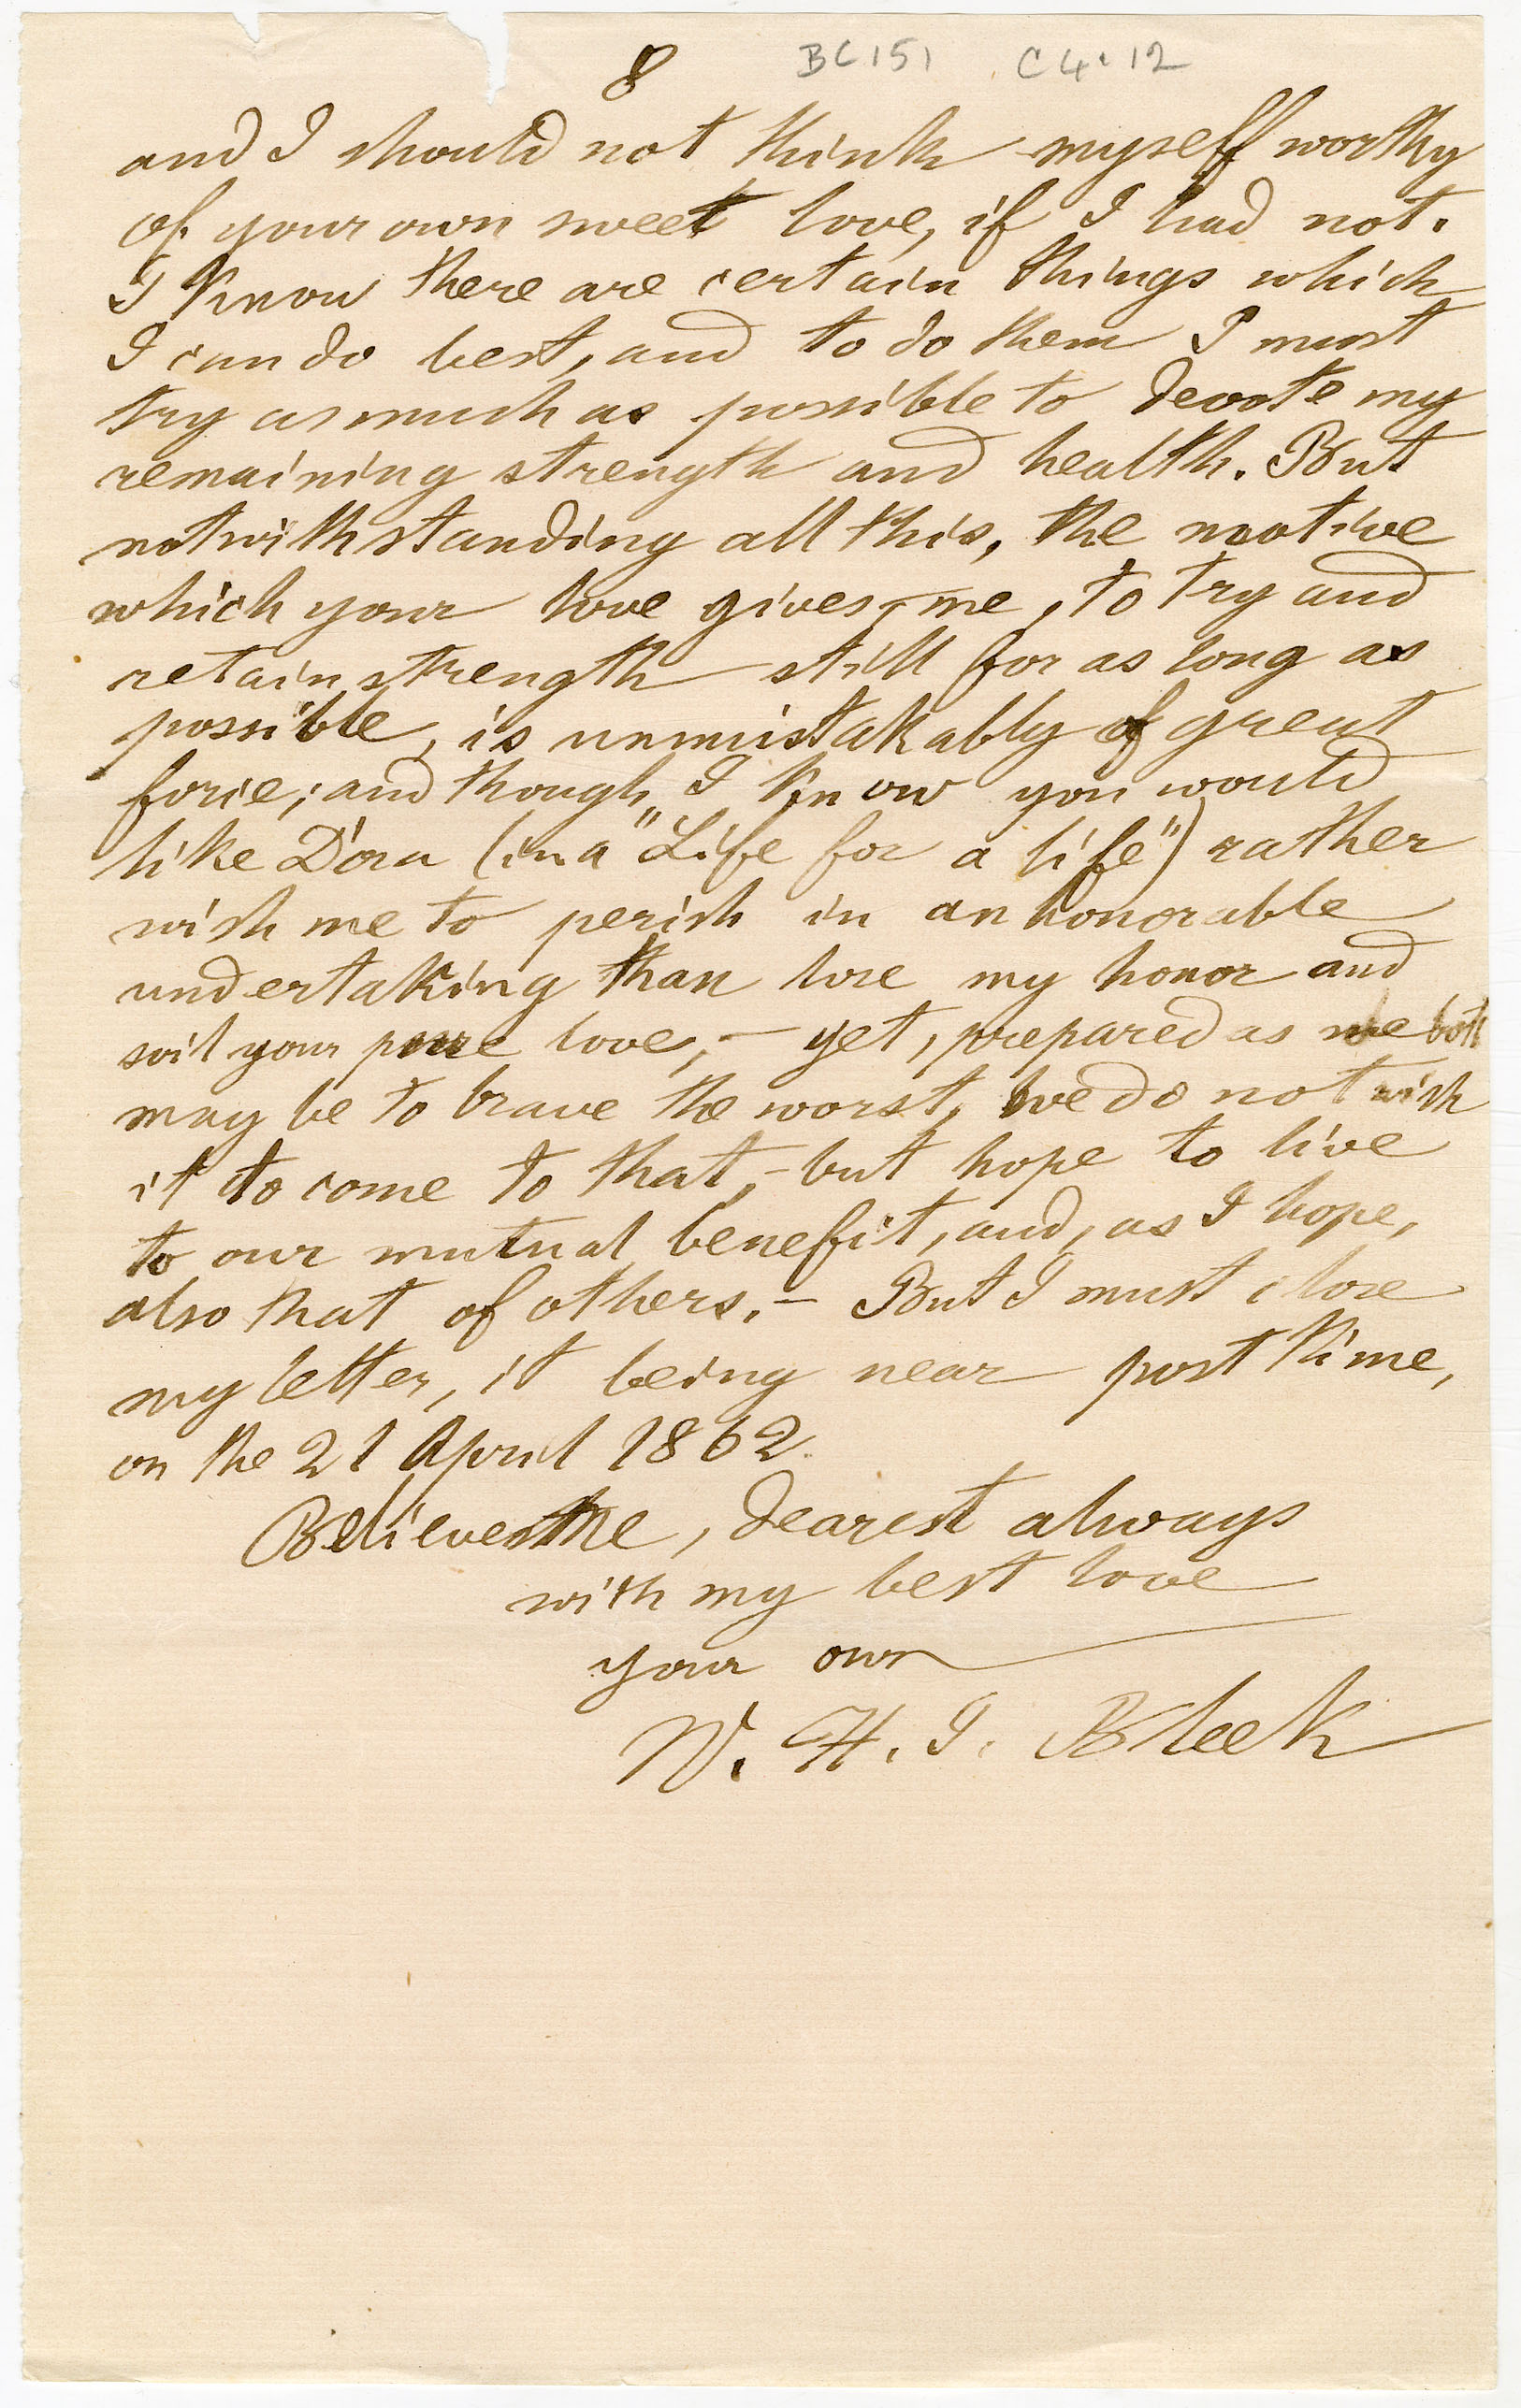 8 BC151 C4.12
and I should not think myself worthy
of your own sweet love, if I had not.
I know there are certain things which
I can do best, and to do them I must
try as much as possible to devote my
remaining strength and health. But
notwithstanding all this, the motive
which your love gives me, to try and
retain strength still for as long as
possible, is unmistakably of great
force; and though I know you would
like Dora (in a "Life for a life") rather
wish me to perish in an honorable
undertaking than lose my honor and
soil your pure love, – yet, prepared as we both
may be to brave the worst, we do not wish
it to come to that, – but hope to live
to our mutual benefit, and, as I hope,
also that of others. – But I must close
my letter, it being near post time,
on the 21 April 1862.
Believe me, dearest always
with my best love
your own
W. H. I. Bleek